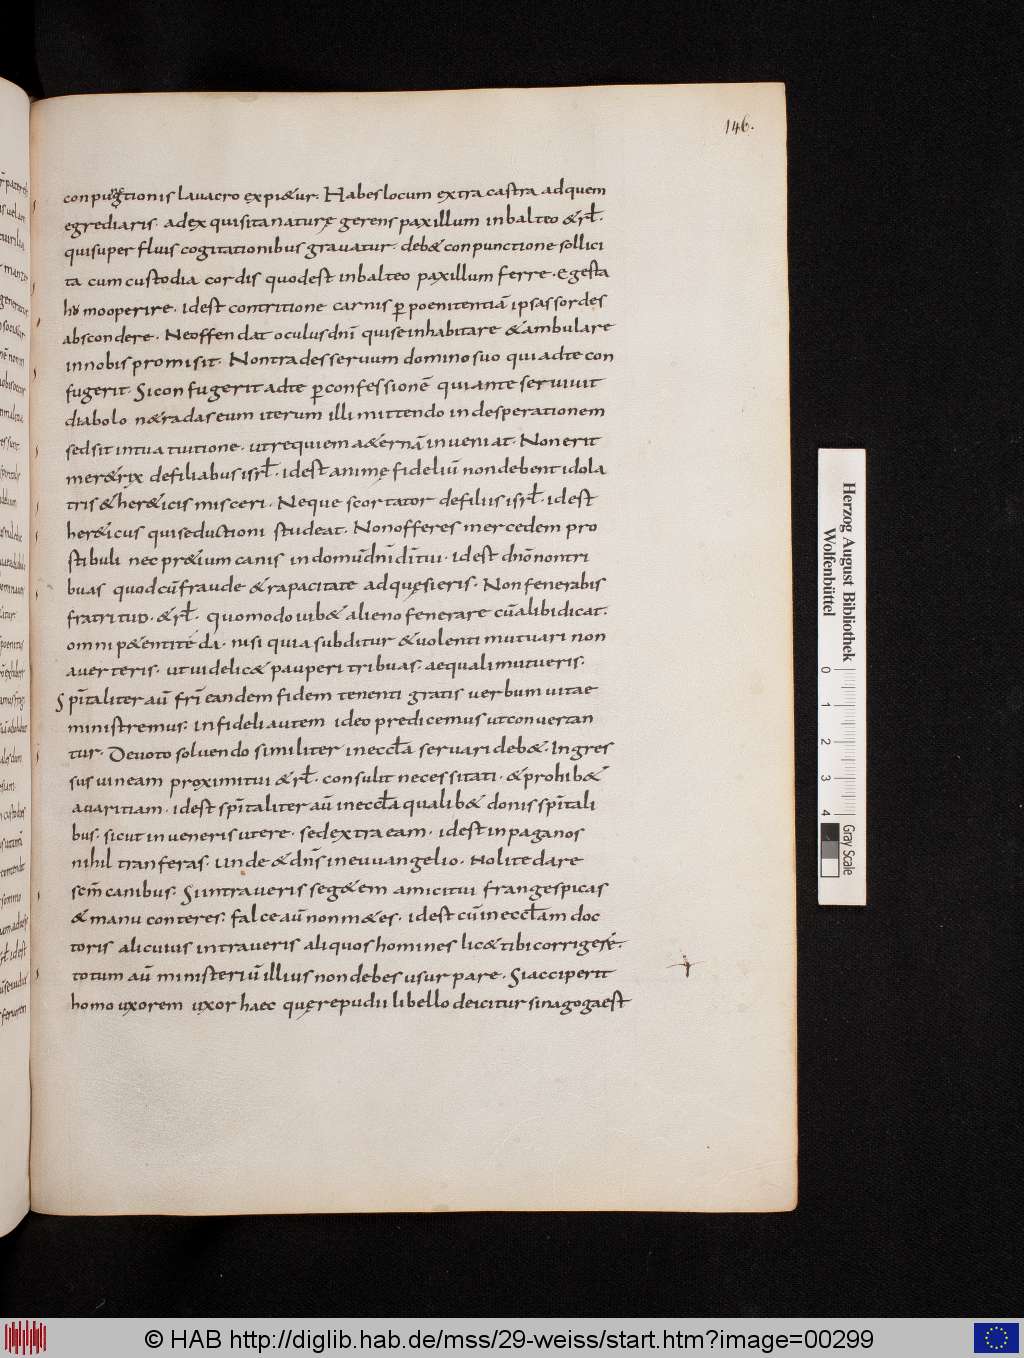 146.
conpunctionis lauacro expi&ur. Habes locum extra castra ad quem
egrediaris. ad exquisita naturę gerens paxillum in balteo & rł.
qui super fluis cogitationibus grauatur. deb& conpunctione sollici
ta cum custodia cordis quod est in balteo paxillum ferre. Egesta
humo operire. id est contritione carnis p poenitentiā ipsas sordes
abscondere. Ne offendat oculus dnī qui se inhabitare & ambulare
in nobis promisit. Non trades seruum domino suo qui ad te con
fugerit. Si confugerit ad te p confessionē qui ante seruiuit
diabolo n& radas eum iterum illi mittendo in desperationem
sed sit in tua tiutione. ut requiem a&ernā inueniat. Non erit
mer&rix de filiabus isrł. id est animę fideliū non debent idola
tris & her&icis misceri. Neque scortator de filiis isrł. id est
her&icus qui seductioni studeat. Non offeres mercedem pro
stibuli nec pr&ium canis in domū dnī dī tui. id est dnō non tri
buas quod cū fraude & rapacitate adquęsieris. Non fenerabis
fratri tuo. & rł. quomodo iub& alieno fenerare cū alibi dicat.
omni p&enti te da. nisi quia subditur & uolenti mutuari non
auerteris. ut uidelic& pauperi tribuas. aequali mutueris.
Spīritaliter aū frī eandem fidem tenenti gratis uerbum uitae
ministremus. infideli autem ideo predicemus ut conuertan
tur. Deuoto soluendo similiter in eccła seruari deb&. Ingres
sus uineam proximi tui & rł. consulit necessitati. & prohib&
auaritiam. id est spīritaliter aū in eccła qualib& donis spīritali
bus. sicut inueneris utere. sed extra eam. id est in paganos
nihil tranferas. Unde & dnī in euuangelio. Nolite dare
scm̄ canibus. Si intraueris seg&em amici tui franges spicas
& manu conteres. falce aū non m&es. id est cū in eccłam doc
toris alicuius intraueris aliquos homines lic& tibi corrigere.
totum aū ministeriū illius non debes usurpare. Si acciperit
homo uxorem uxor haec quę repudii libello deicitur sinagoga est
Herzog August Bibliothek
Wolfenbüttel
0 1 2 3 4
Gray Scale
© HAB http://diglib.hab.de/mss/29-weiss/start.htm?image=00299